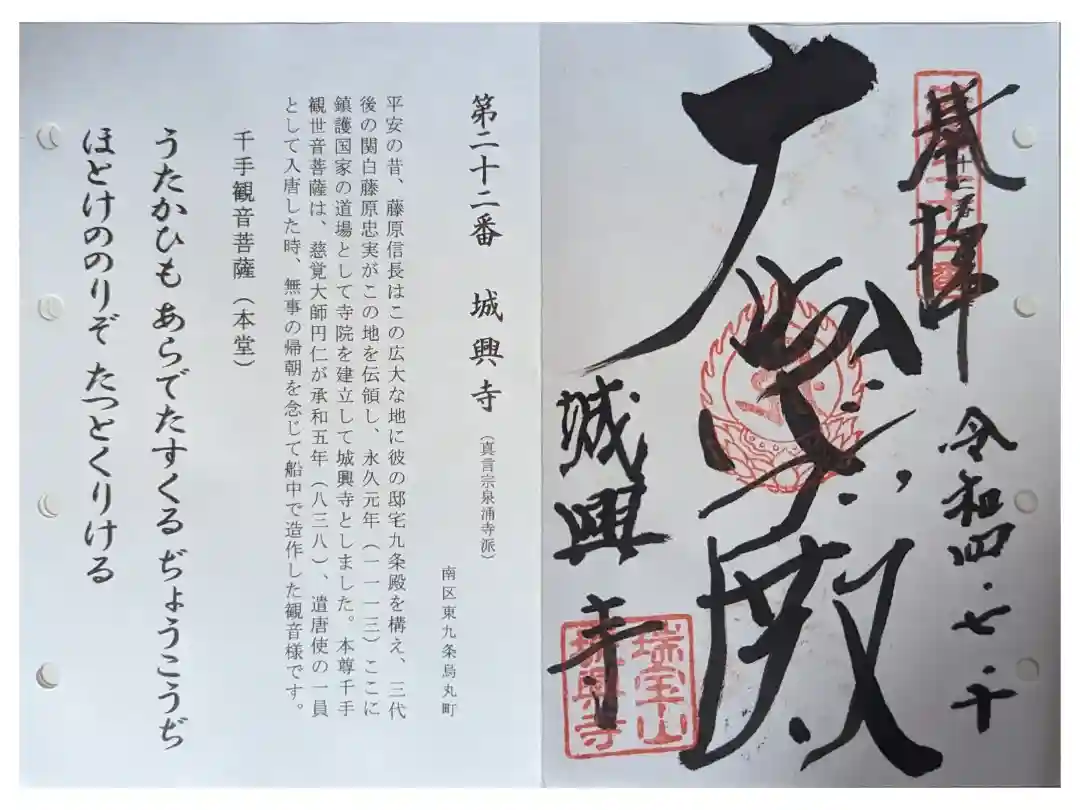 奉拝
令和四・七・十
大悲殿
城興寺
瑞宝山
城興寺
第二十二番 城興寺（真言宗泉涌寺派）
南区東九条烏丸町
平安の昔、藤原信長はこの広大な地に彼の邸宅九条殿を構え、三代
後の関白藤原忠実がこの地を伝領し、永久元年（一一一三）ここに
鎮護国家の道場として寺院を建立して城興寺としました。本尊千手
観世音菩薩は、慈覚大師円仁が承和五年（八三八）、遣唐使の一員
として入唐した時、無事の帰朝を念じて船中で造作した観音様です。
千手観音菩薩（本堂）
うたかひも あらでたすくる ぢょうこうぢ
ほとけののりぞ たつとくりける